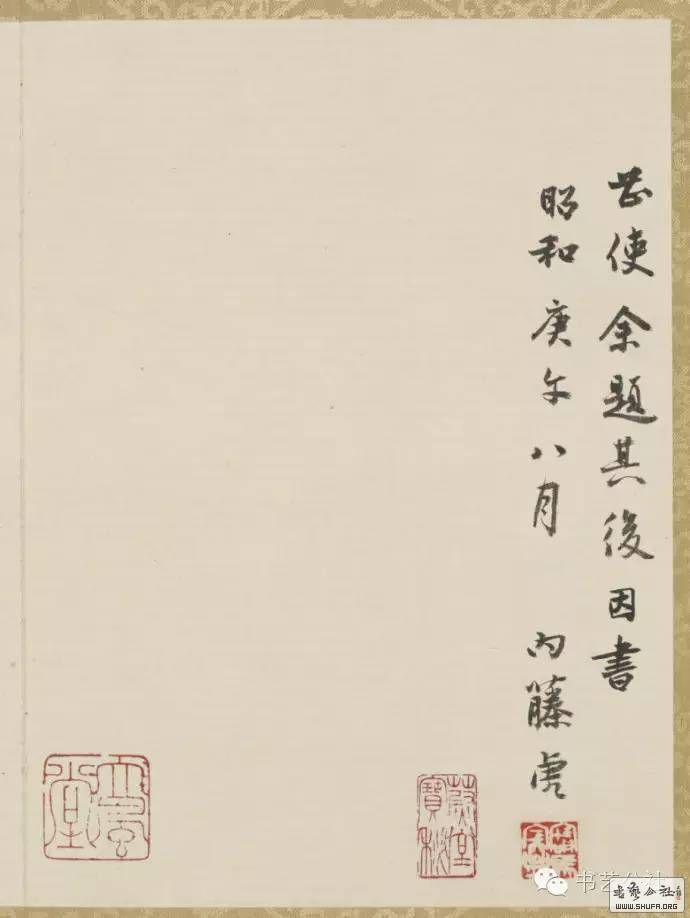 使余題其後因書
昭和庚午八月 内藤虎
书艺公社
书艺公社
WWW.SHUFA.ORG